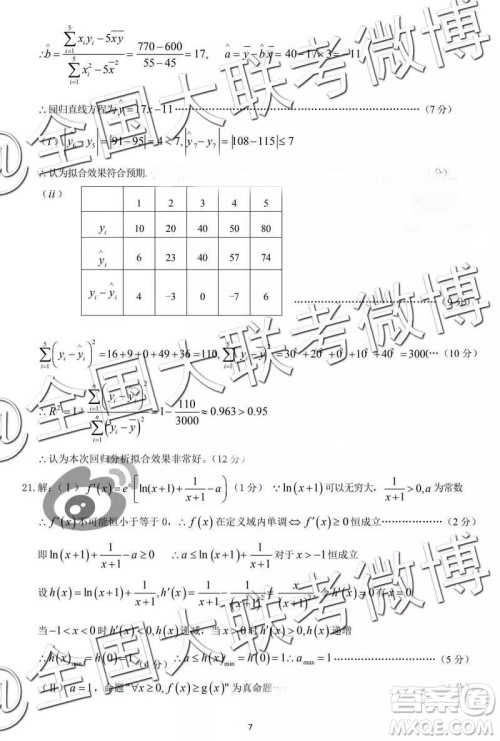 ∴b̂ = (∑_{i=1}^{5} x_i y_i − 5x̄ȳ) / (∑_{i=1}^{5} x_i² − 5x̄²) = (770−600)/(55−45) = 17, â = ȳ − b̂x̄ = 40−17×3 = −11
∴回归直线方程为ŷ=17x−11 ……(7 分)
|y_6−ŷ_5| = |91−95| = 4 < 7, |ŷ_7−y_7| = |108−115| ≤ 7
∴认为拟合效果符合预期. 分)
(ii)
1 2 3 4 5
y_i 10 20 40 50 80
ŷ_i 6 23 40 57 74
y_i−ŷ_i 4 −3 0 −7 6 ……(9 分)
∑_{i=1}^{5}(y_i−ŷ_i)² = 16+9+0+49+36 = 110, ∑_{i=1}^{5}(y_i−ȳ)² = 30²+20²+0²+10²+40² = 300(…(10 分)
∴R² = 1− ∑_{i=1}^{n}(y_i−ŷ_i)² / ∑_{i=1}^{n}(y_i−ȳ)² = 1− 110/3000 ≈ 0.963 > 0.95
∴认为本次回归分析拟合效果非常好。(12 分)
21.解:(Ⅰ) f′(x)=e^x[ln(x+1)+1/(x+1)−a] (1 分) ∵ln(x+1)可以无穷大, 1/(x+1)>0, a 为常数
∴f′(x)不可能恒小于等于 0, ∴f(x)在定义域内单调⇔f′(x)≥0恒成立……(2 分)
即 ln(x+1)+1/(x+1)−a≥0 ∴a≤ln(x+1)+1/(x+1) 对于 x>−1 恒成立
设 h(x)=ln(x+1)+1/(x+1), h′(x)= h′(x)=0有 x=0
当 −1<x<0 时 h′(x)<0, h(x)递减, 当 x>0 时 h′(x)>0, h(x)递增
∴h(x)_min (4 分) ∴a≤h(x)_min=h(0)=1∴a_max=1 ……(5 分)
(Ⅱ) a=1, 命题"∀x≥0, f(x)≥g(x)"为真命题…
7
@全国大联考微博
@全国大联考微博
答案圈
MXQE.COM